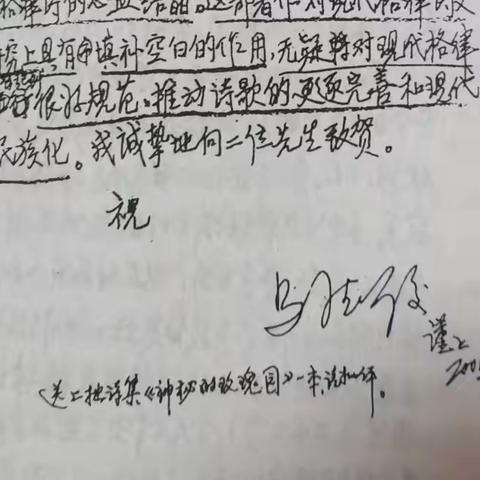 和律诗的心血结晶。这部著作对现代格律诗及
究上具有申填补空白的作用，无疑将对现代格律
很好规范。推动诗歌的更逐完善和现代
民族化。我诚挚地向二位先生致贺。
祝
谨上
200
送上拙诗集《神秘的玫瑰园》一本，请批评。